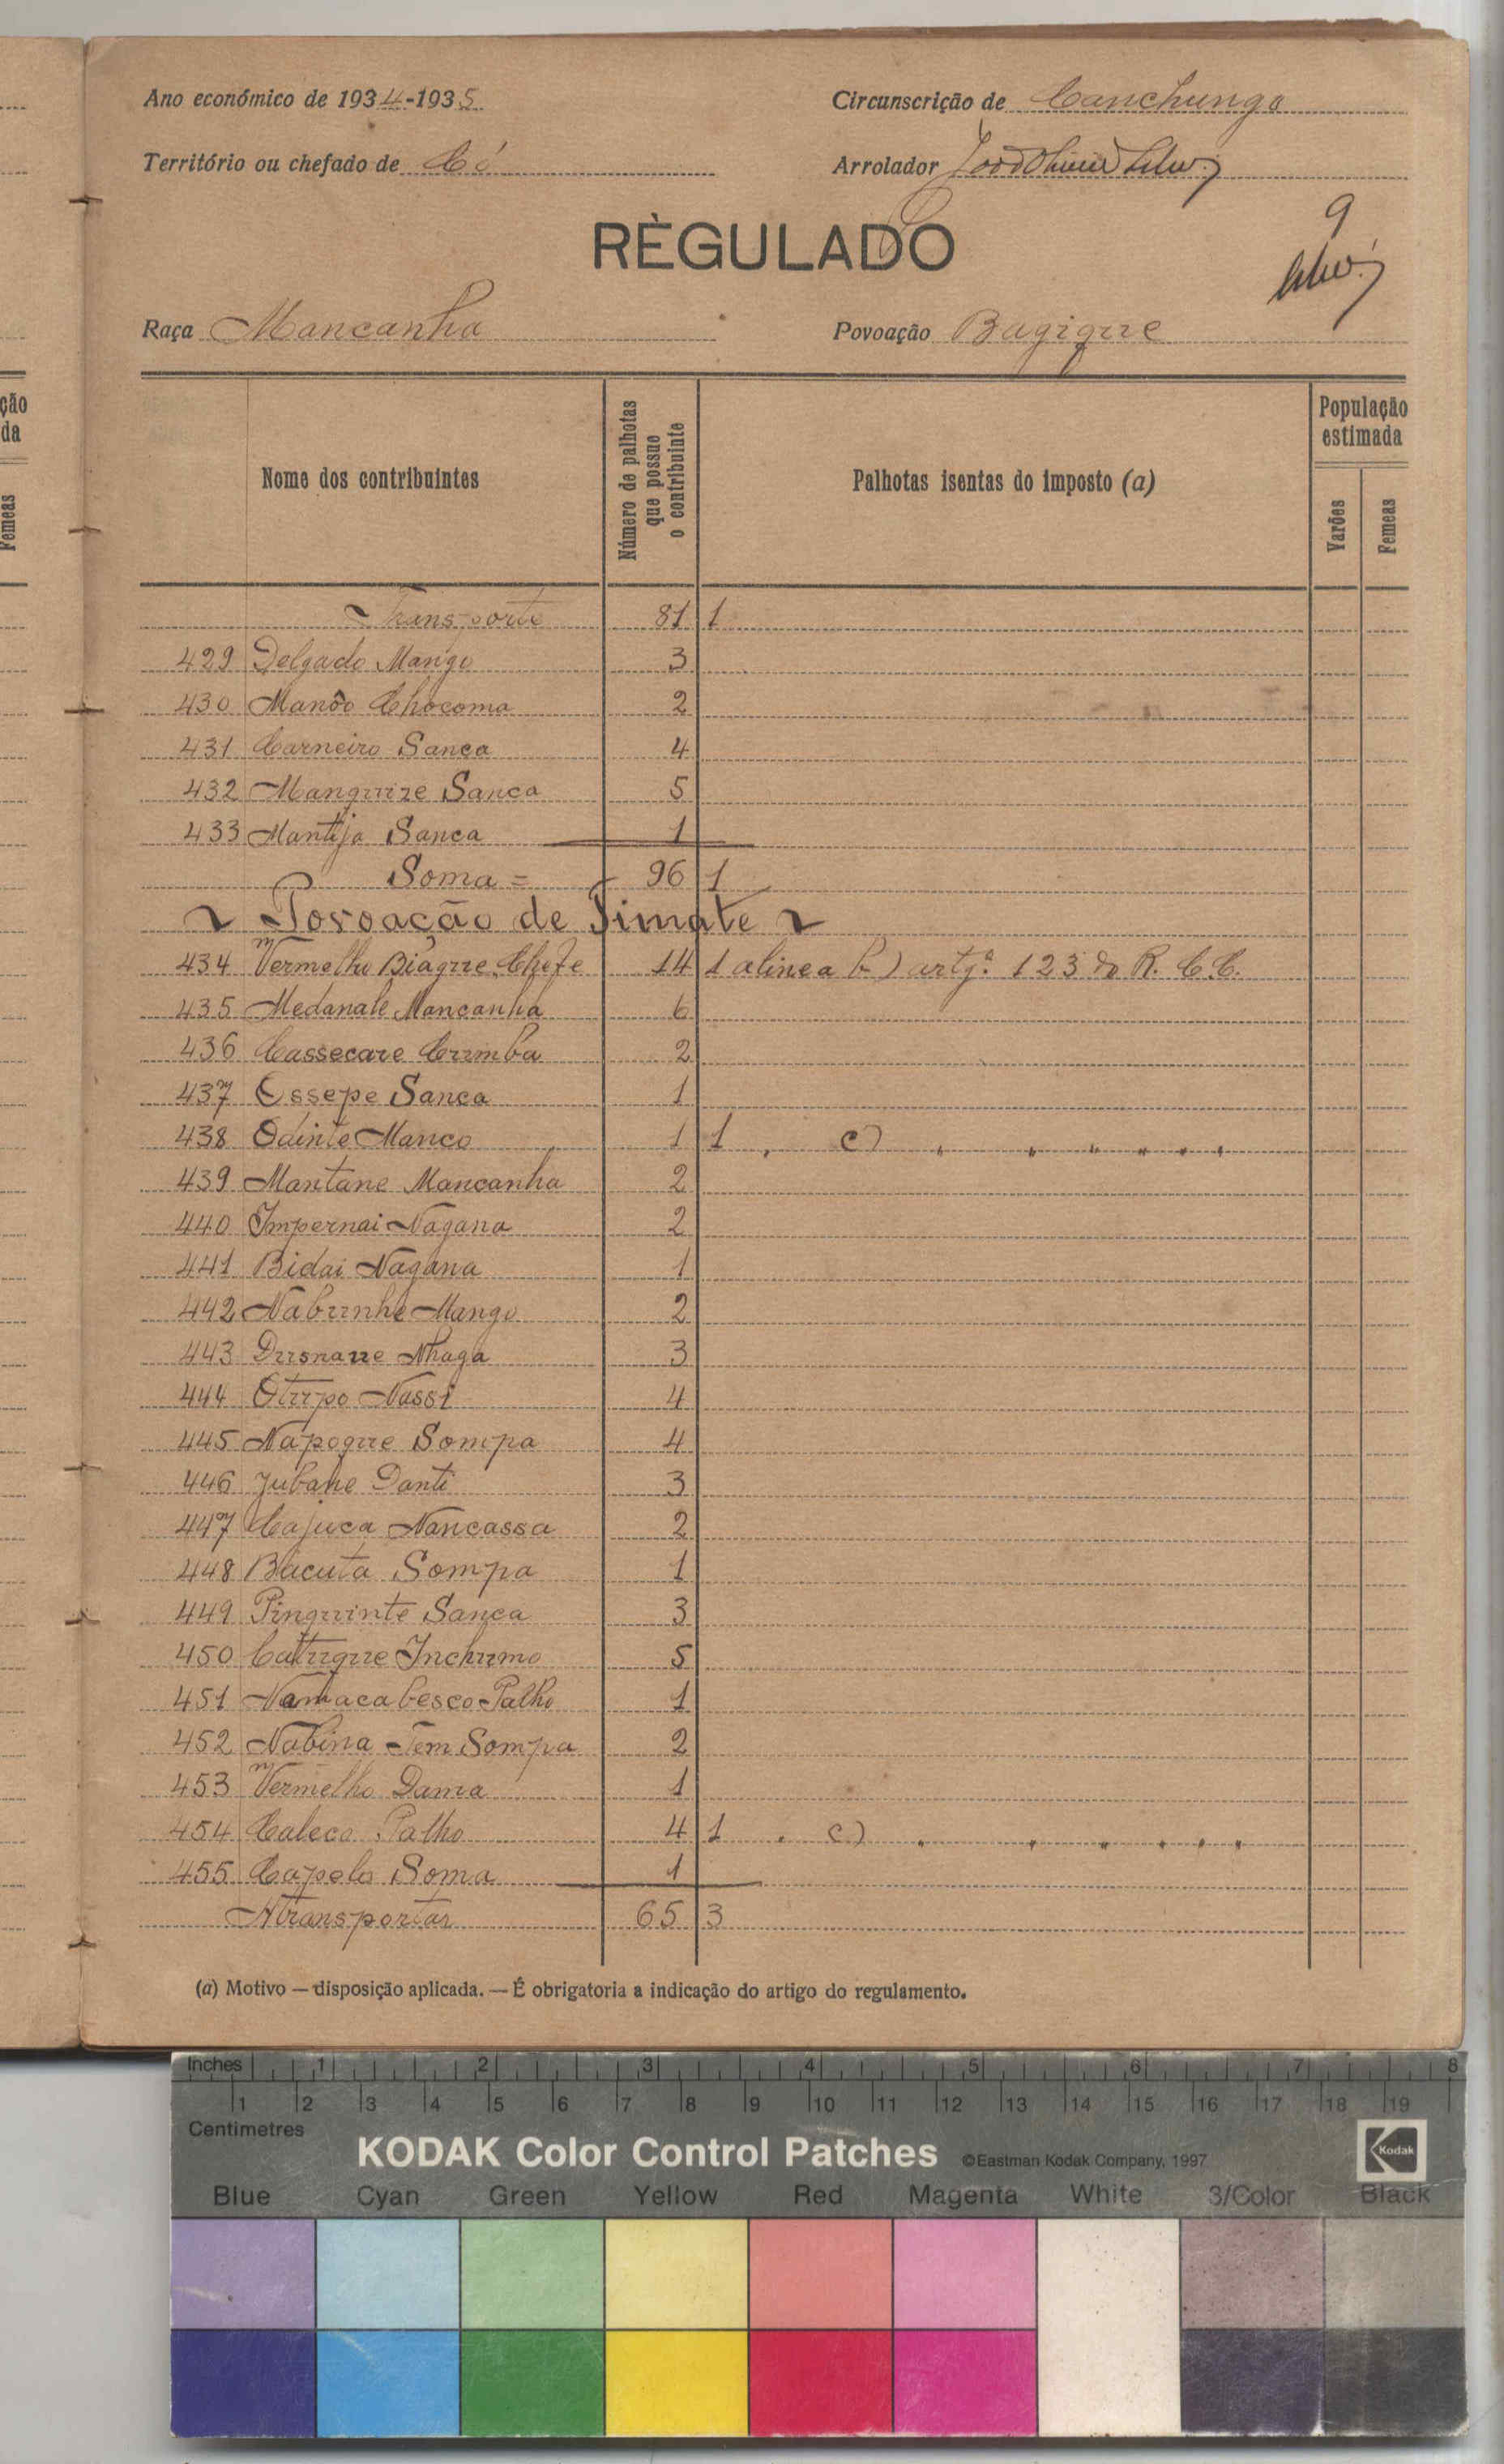 Ano económico de 1934-1935
Circunscrição de Canchungo
Território ou chefado de Có
Arrolador
RÈGULADO
9
Raça Mancanha
Povoação Bugigue
ção
da
Femeas
Nome dos contribuintes
Número de palhotas que possue o contribuinte
Palhotas isentas do imposto (a)
População estimada
Varões
Femeas
Transporte 81 1
429 Delgado Mango 3
430 Manôo Chocoma 2
431 Carneiro Sanca 4
432 Manguize Sanca 5
433 Mantija Sanca 1
Soma = 96 1
Povoação de Timate
434 Vermelho Biague, Chefe 14 1 alinea b) artgº. 123 do R. C. C.
435 Medanale Mancanha 6
436 Cassecare Cumba 2
437 Essepe Sanca 1
438 Odinte Manco 1 1 " c) " " " " " "
439 Mantane Mancanha 2
440 Impernai Nagana 2
441 Bidai Nagana 1
442 Nabunhe Mango 2
443 Dusnaue Nhaga 3
444 Otupo Nassi 4
445 Napogue Sompa 4
446 Jubane Danti 3
447 Cajuca Nancassa 2
448 Bacuta Sompa 1
449 Pinguinte Sanca 3
450 Catugue Inchumo 5
451 Namaca Cesco Palho 1
452 Nabina Tem Sompa 2
453 Vermelho Dama 1
454 Caleco Palho 4 1 " c) " " " " " "
455 Capelo Soma 1
Atransportar 65 3
(a) Motivo — disposição aplicada. — É obrigatoria a indicação do artigo do regulamento.
Inches 1 2 3 4 5 6 7 8
1 2 3 4 5 6 7 8 9 10 11 12 13 14 15 16 17 18 19
Centimetres
KODAK Color Control Patches ©Eastman Kodak Company, 1997 Kodak
Blue Cyan Green Yellow Red Magenta White 3/Color Black